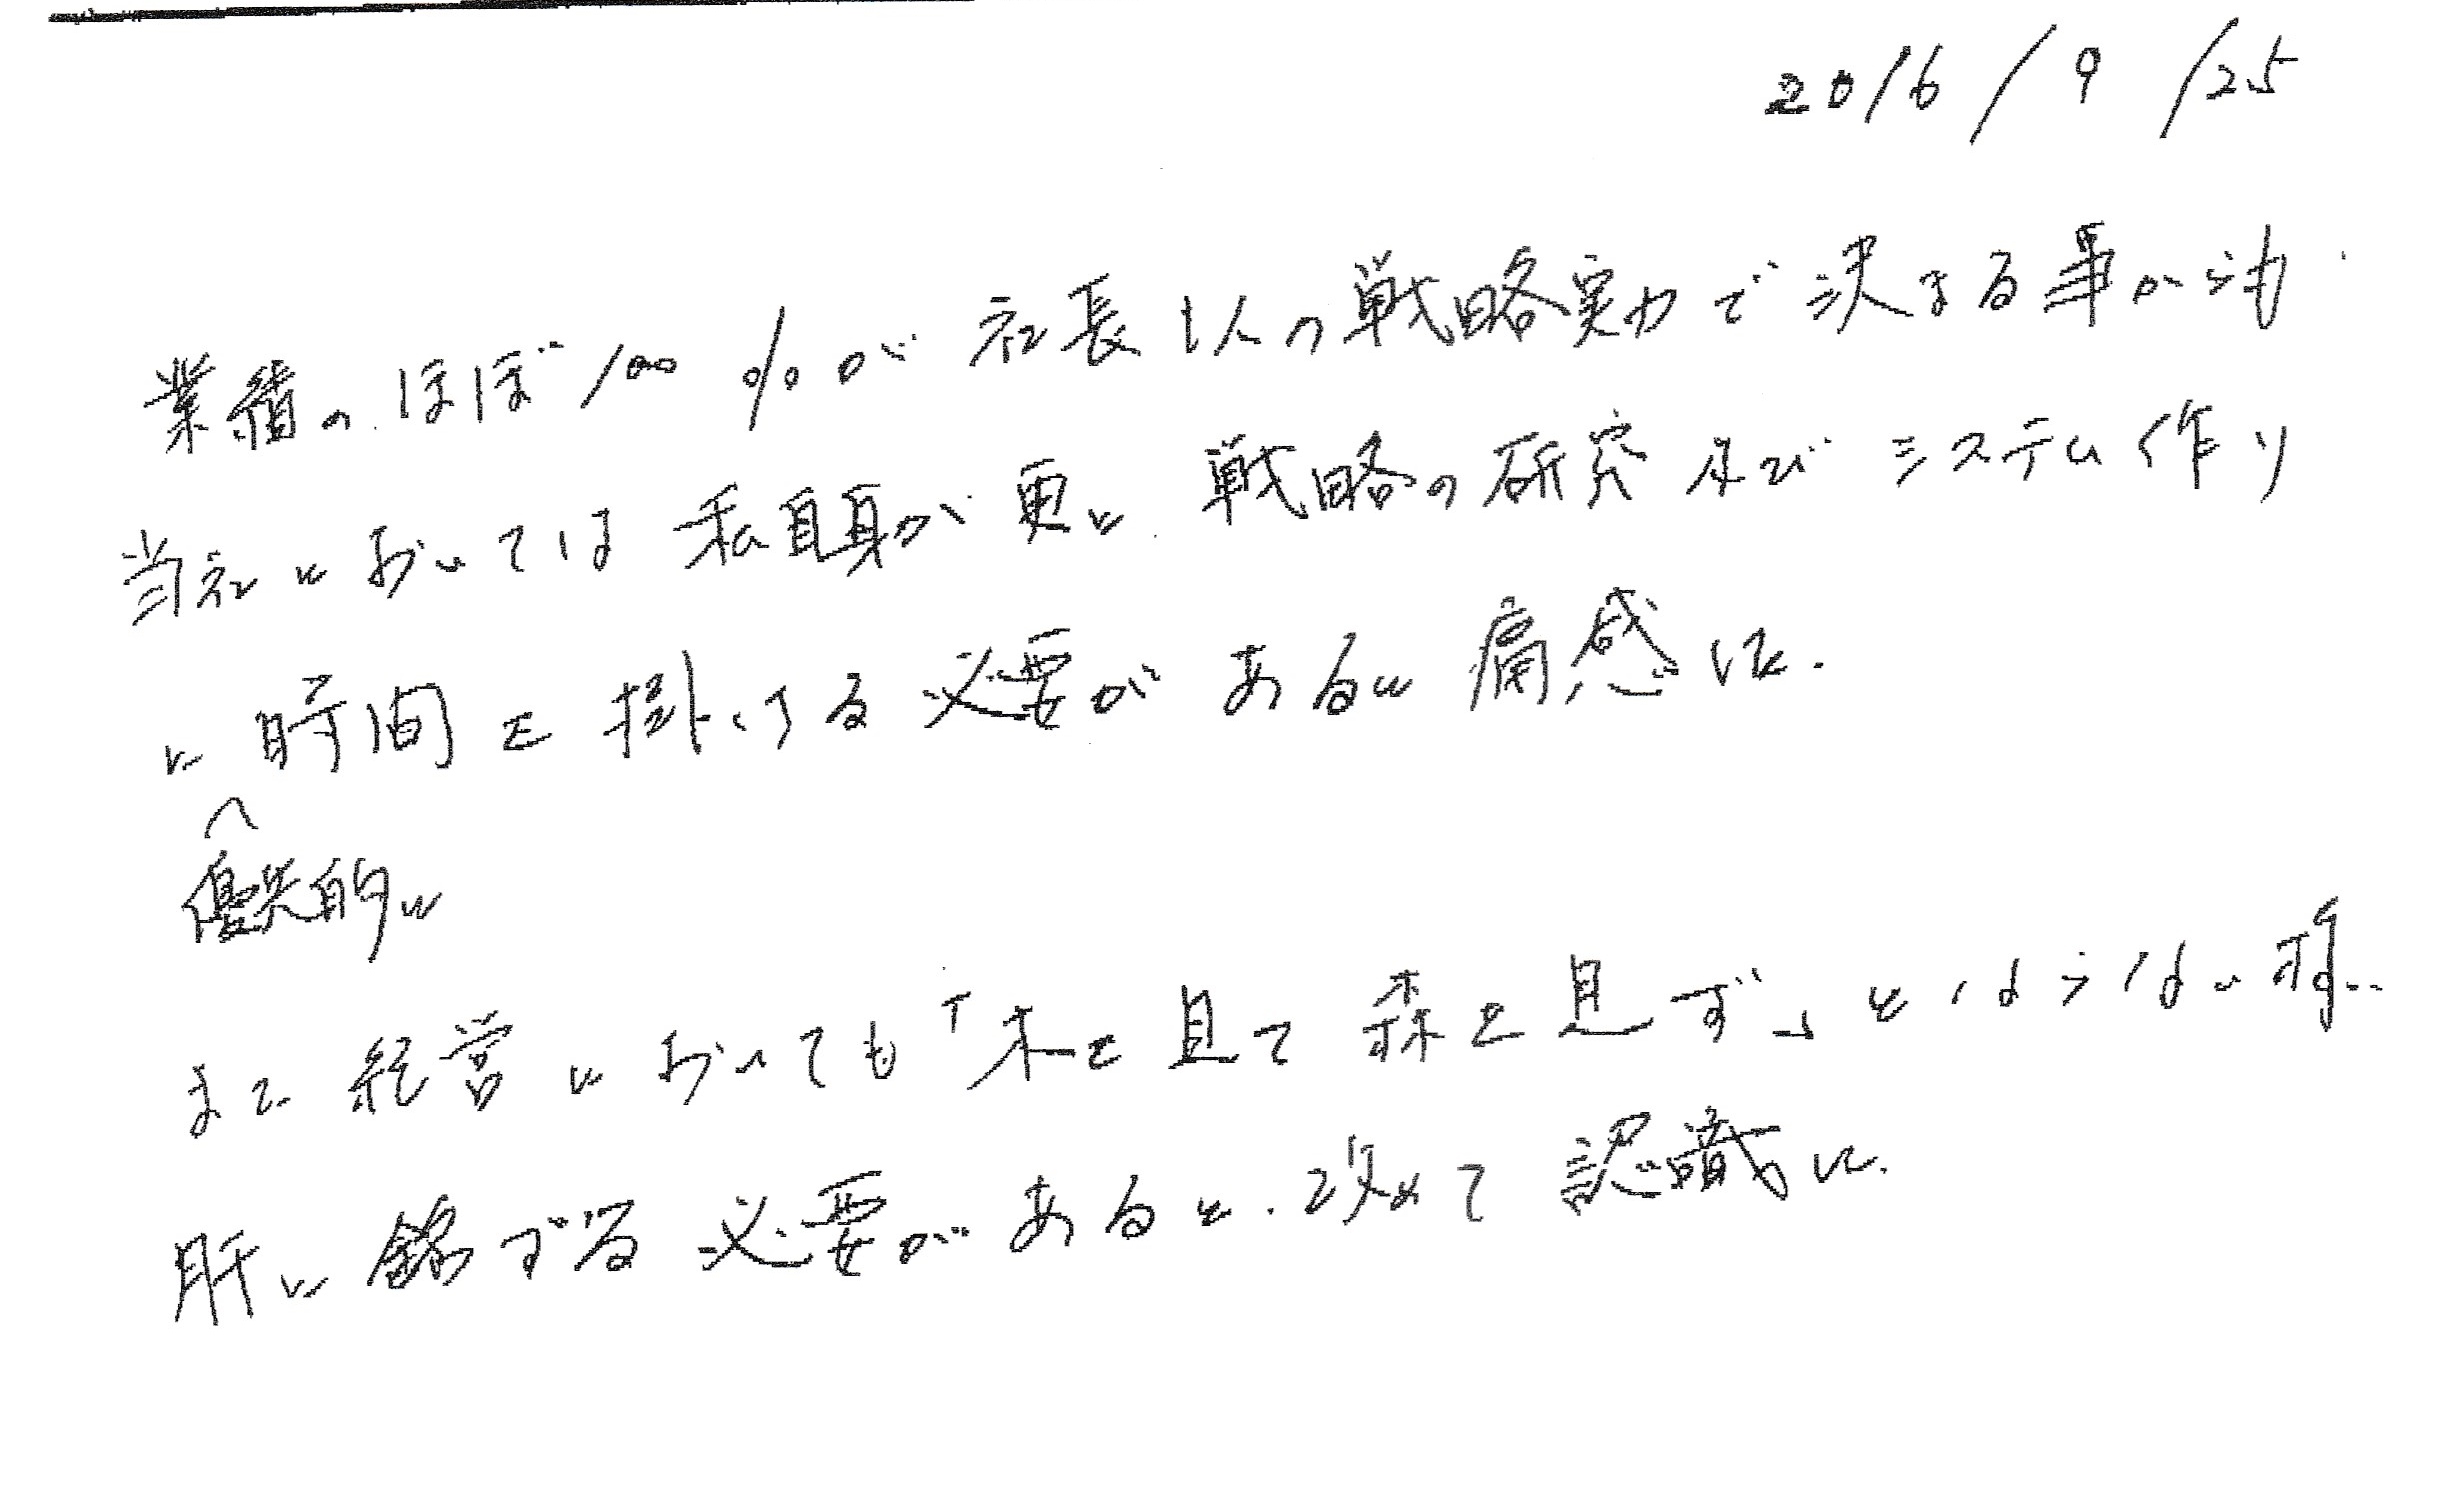 2016/9/25
業績のほぼ100%が社長1人の戦略実力で決まる事からも
当社においては私自身が更に戦略の研究及びシステム作り
に時間を掛ける必要があると痛感した.
優先的に
また経営においても「木を見て森を見ず」とはならない様..
肝に銘ずる必要があると.改めて認識した.